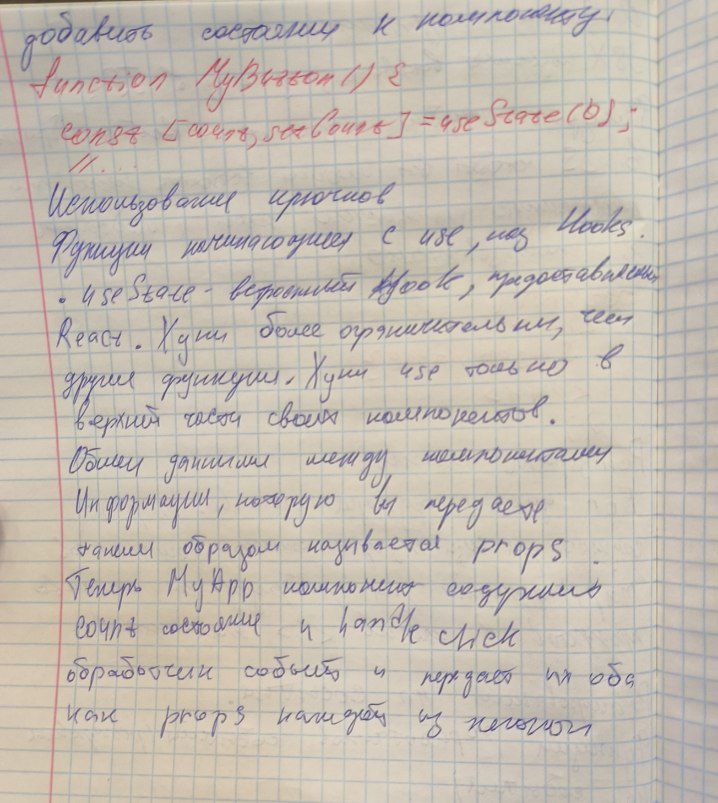 добавить состояния к компоненту.
function MyButton() {
const [count, setCount] = useState(0);
//...
Использование крючков
Функции начинающиеся с use, наз Hooks.
. useState - встроенный Hook, предоставляемый
React. Хуки более ограничительны, чем
другие функции. Хуки use только в
верхней части своих компонентов.
Обмен данными между компонентами
Информация, которую вы передаете
таким образом называется props.
Теперь MyApp компонент содержит
count состояние и handle click
обработчик событий и передает их оба
как props каждой из кнопок